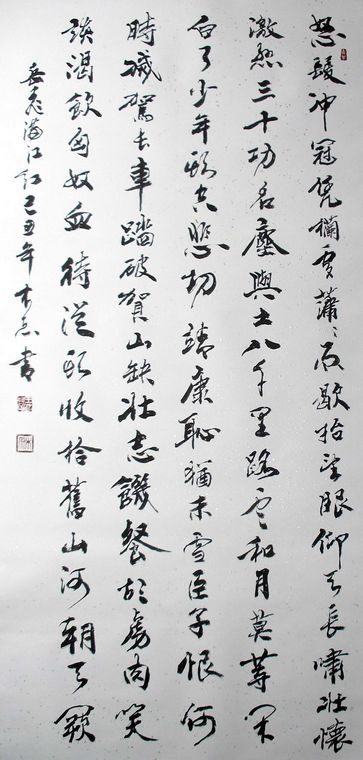 怒髮冲冠凭欄处潇潇雨歇抬望眼仰天長嘯壯懷
激烈三十功名塵與土八千里路雲和月莫等闲
白了少年頭空悲切靖康恥猶未雪臣子恨何
時滅駕长車踏破賀山缺壯志饑餐胡虜肉笑
談渴飲匈奴血待從頭收拾舊山河朝天闕
岳飛满江红己丑年木志書